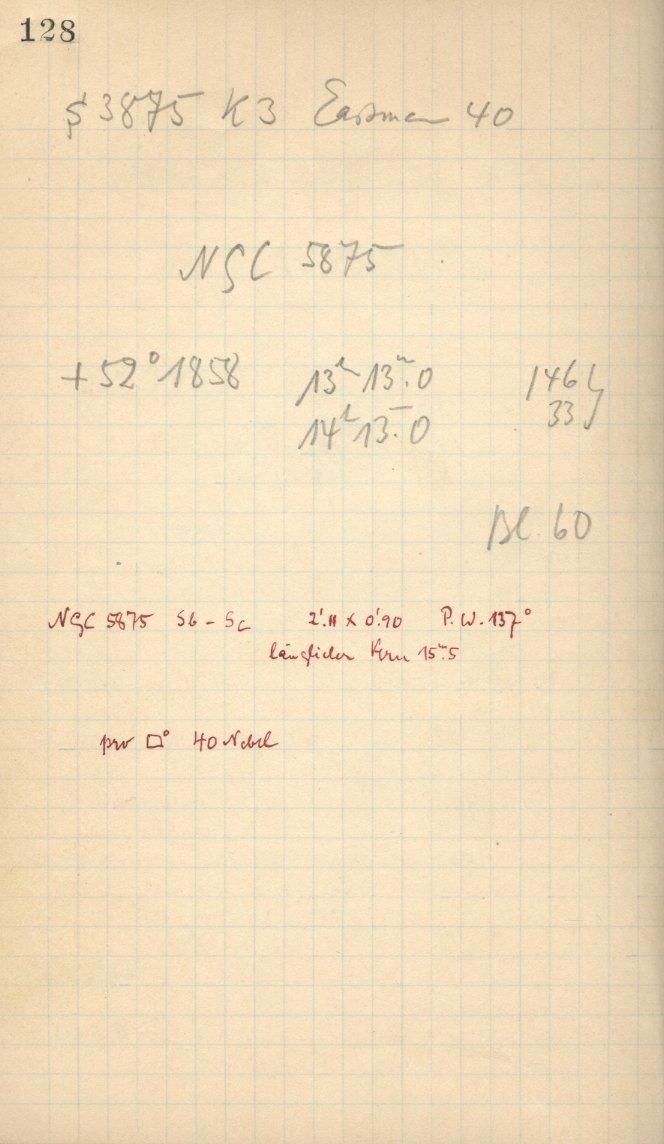 128
3875 K3 Eastman 40
NGC 5875
+52° 1858 13ʰ 13ᵐ.0 146
14ʰ 13ᵐ.0 33
Bl. 60
NGC 5875 Sb – Sc 2'.11 × 0'.90 P.W. 137°
länglicher Kern 15ᵐ.5
pro □° 40 Nebel